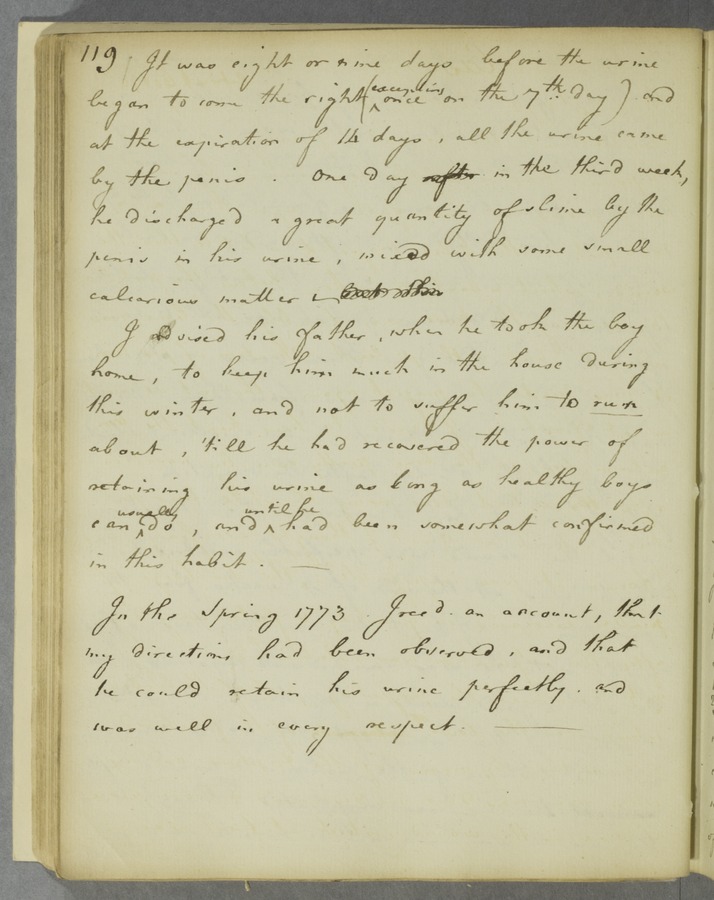 119 It was eight or nine days before the urine
began to come the right (excepting once on the 7th day) and
at the expiration of 14 days, all the urine came
by the penis. One day after in the third week,
he discharged a great quantity of slime by the
penis in his urine, mixed with some small
calcarious matter
I advised his father, when he took the boy
home, to keep him much in the house during
this winter, and not to suffer him to run
about, 'till he had recovered the power of
retaining his urine as long as healthy boys
can usually do, and until he had been somewhat confirmed
in this habit. —
In the Spring 1773 I reced. an account, that
my directions had been observed, and that
he could retain his urine perfectly. and
was well in every respect. —